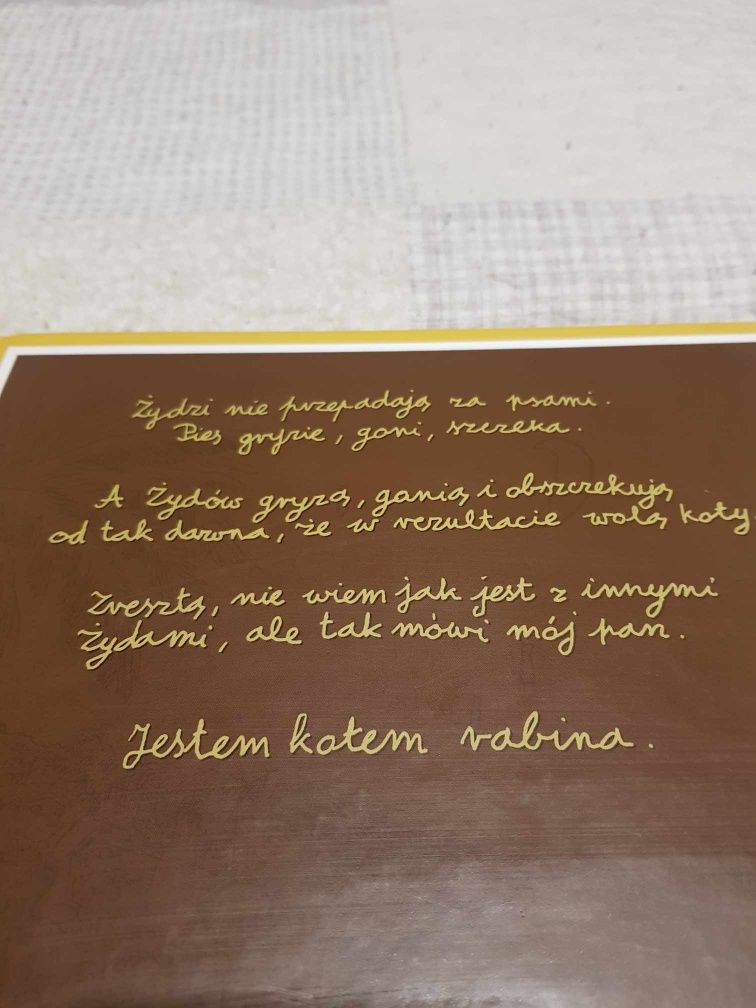 Żydzi nie przepadają za psami.
Pies gryzie, goni, szczeka.
A Żydów gryzą, ganią i obszczekują
od tak dawna, że w rezultacie wolą koty.
Zresztą, nie wiem jak jest z innymi
Żydami, ale tak mówi mój pan.
Jestem kotem rabina.